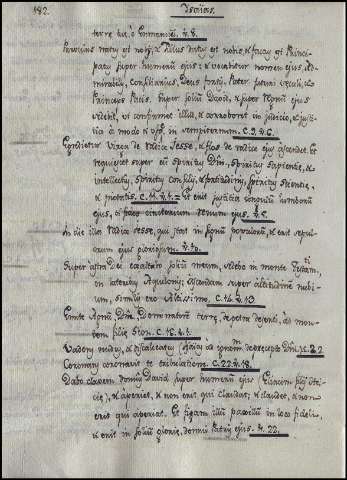 182. Isaias.
terræ tuæ, ô Emmanuel. v. 8.
Parvulus natus est nobis, & Filius natus est nobis, & factus est Princi-
patus super humerum ejus; & vocabitur nomen ejus, Ad-
mirabilis, Consiliarius, Deus fortis, Pater futuri sæculi,
Princeps Pacis. super solium David, & super Regnum ejus
ut confirmet illud, & corroboret in judicio, & justi-
tia à modo & usque in sempiternum. C. 9. v. 6.
Egredietur Virga de radice Jesse, & flos de radice ejus ascendet. Et
requiescet super eum Spiritus Dñi, Spiritus sapientiæ, &
intellectus, Spiritus consilij, & fortitudinis, Spiritus scientiæ,
& pietatis. C. 11. v. 1. Et erit justitia cingulum lumborum
ejus, et fides cinctorium renum ejus. v. 5.
In die illa radix Jesse, qui stat in signum populorum, & erit sepul-
crum ejus gloriosum. v. 10.
super astra Dei exaltabo solium meum, sedebo in monte Testam.
in lateribus Aquilonis; Ascendam super altitudinem nubi-
um, similis ero Altissimo. C. 14. v. 13
Emitte Agnum Dñe Dominatorem terræ, de petra deserti, ad mon-
tem filiæ Sion. C. 16. v. 1.
Vadens nudus, & discalceatus
Coronans coronabit te tribulatione. C. 22. v. 18.
Dabo clavem domus David super humerum ejus
& aperiet, & non erit qui claudat; & claudet, & non
erit qui aperiat. Et figam illum paxillum in loco fideli,
& erit in solium gloriæ, domui Patris ejus. v. 22.